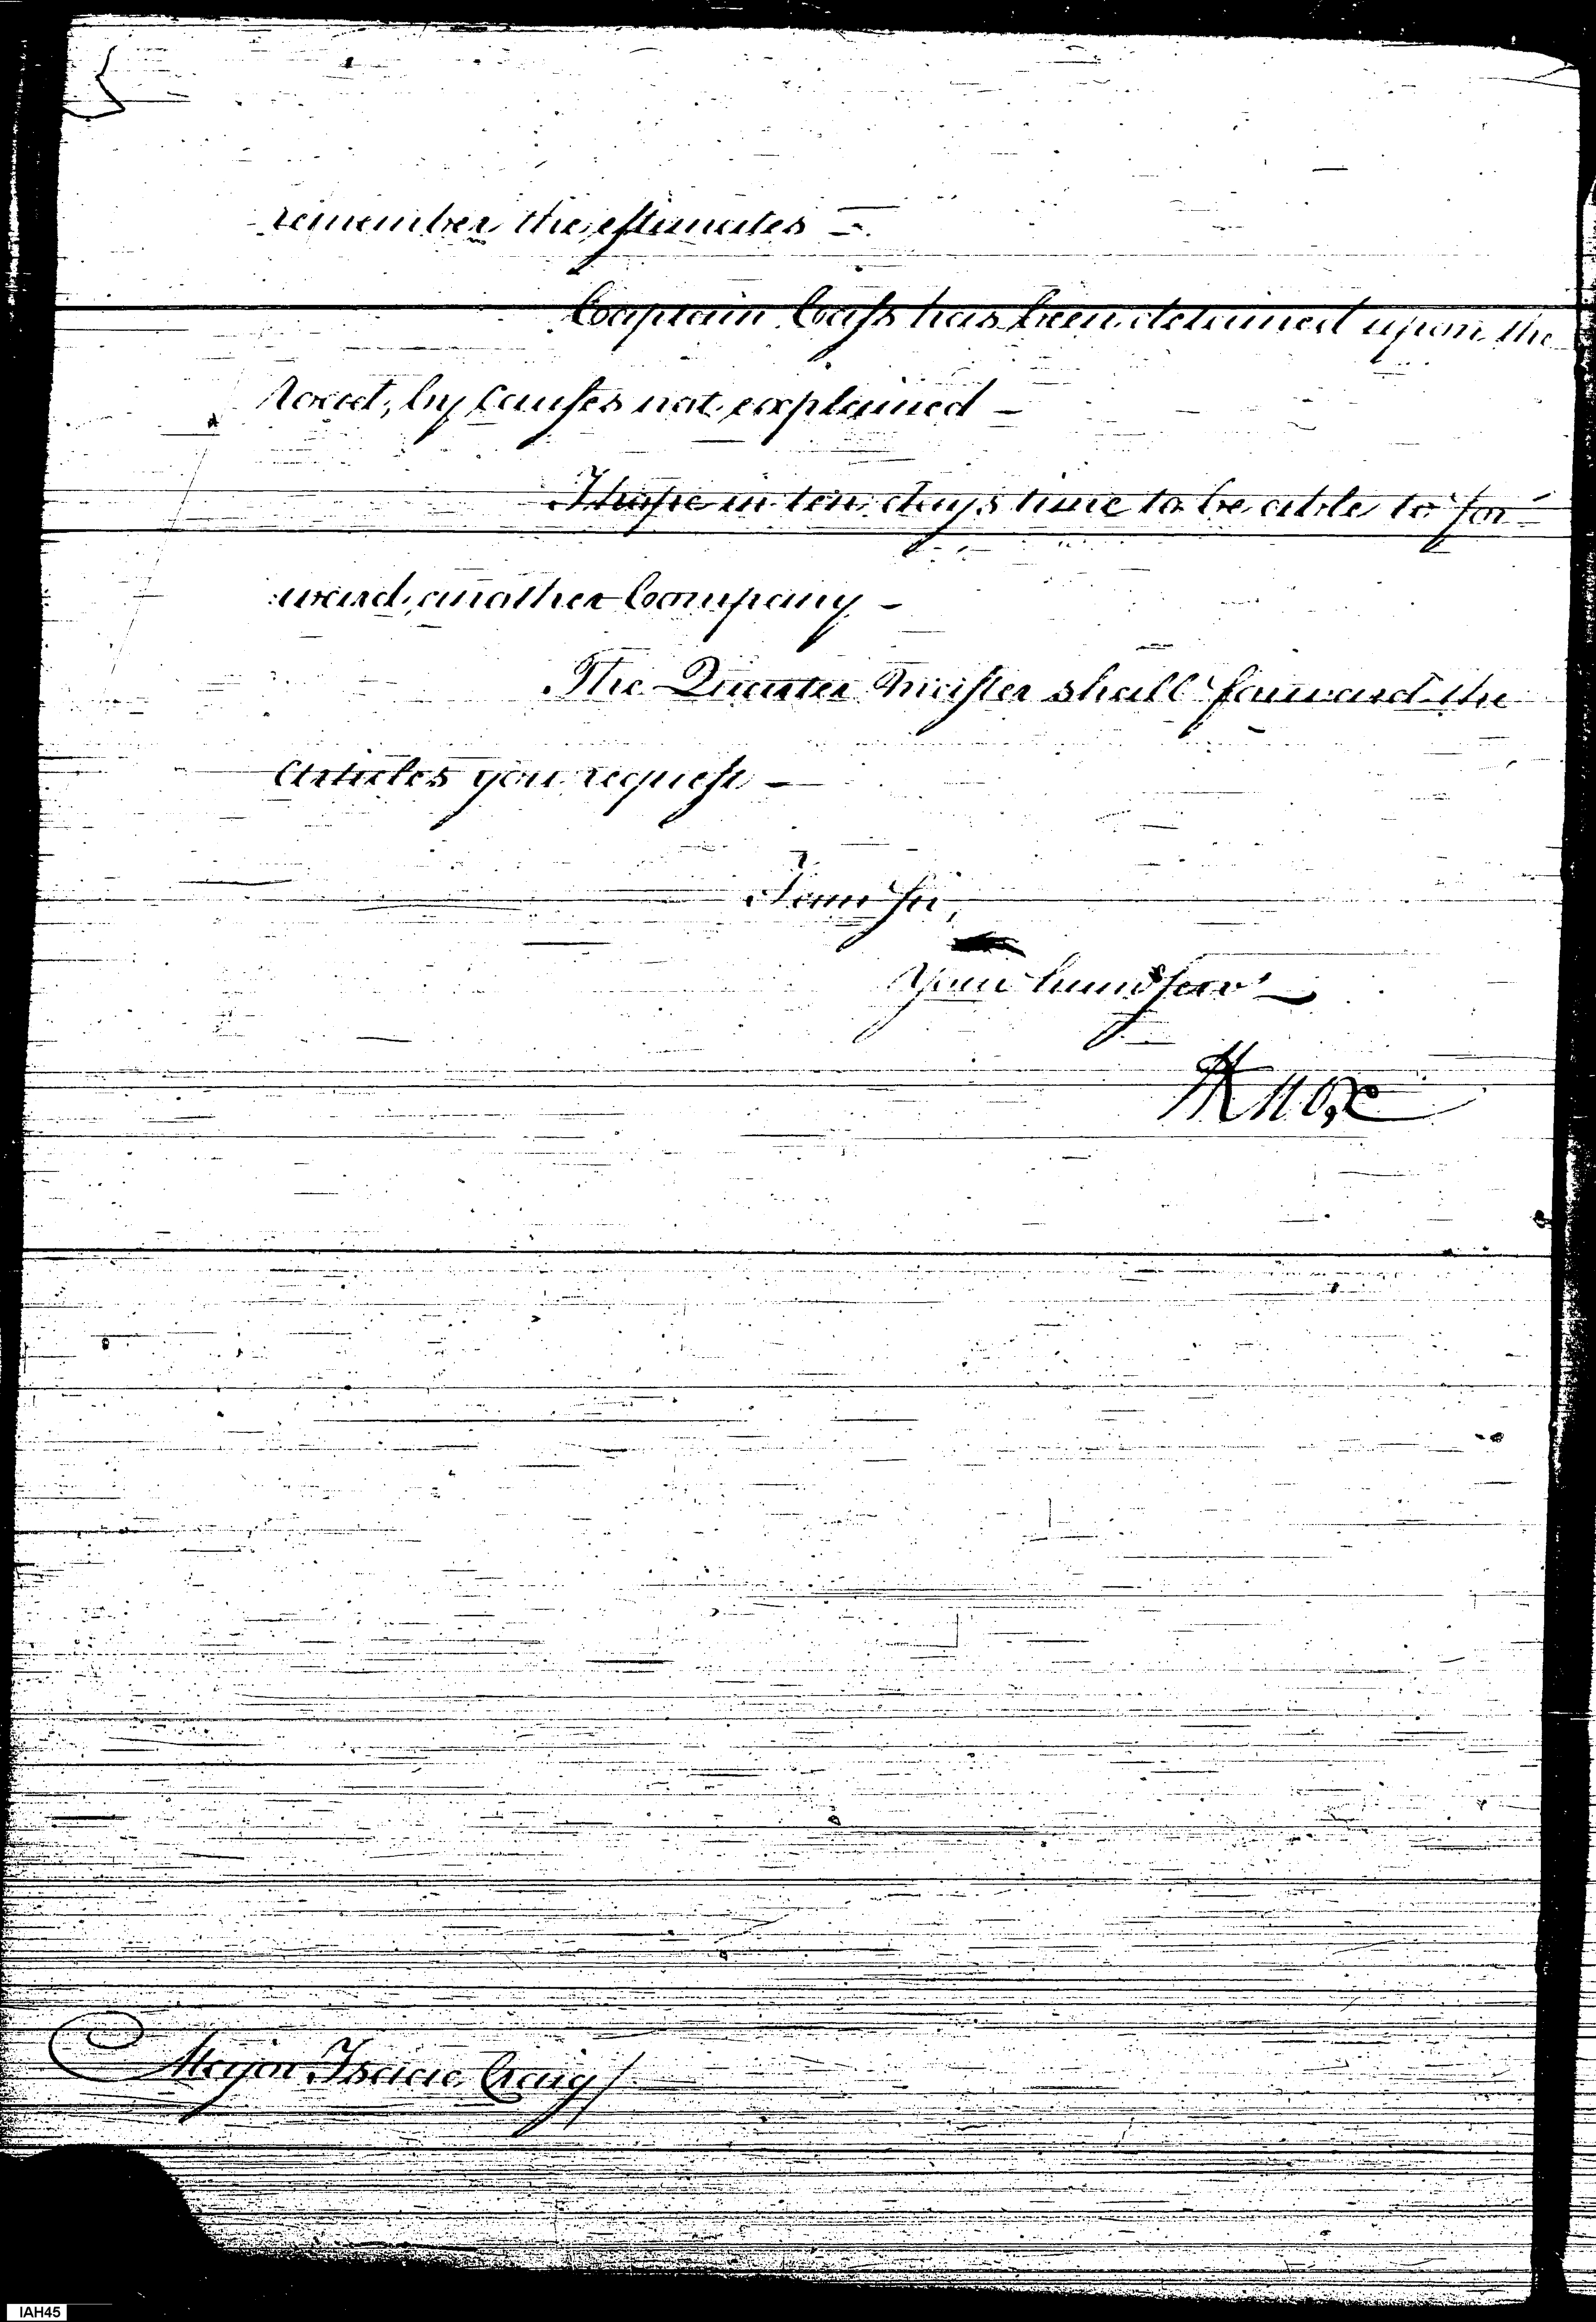 remember the estimates —
Captain Cass has been detained upon the
road, by causes not explained —
I hope in ten days time to be able to for-
ward another Company —
The Quarter Master shall forward the
articles you request —
I am Sir,
Your hum serv
HKnox
Major Isaac Craig
IAH45